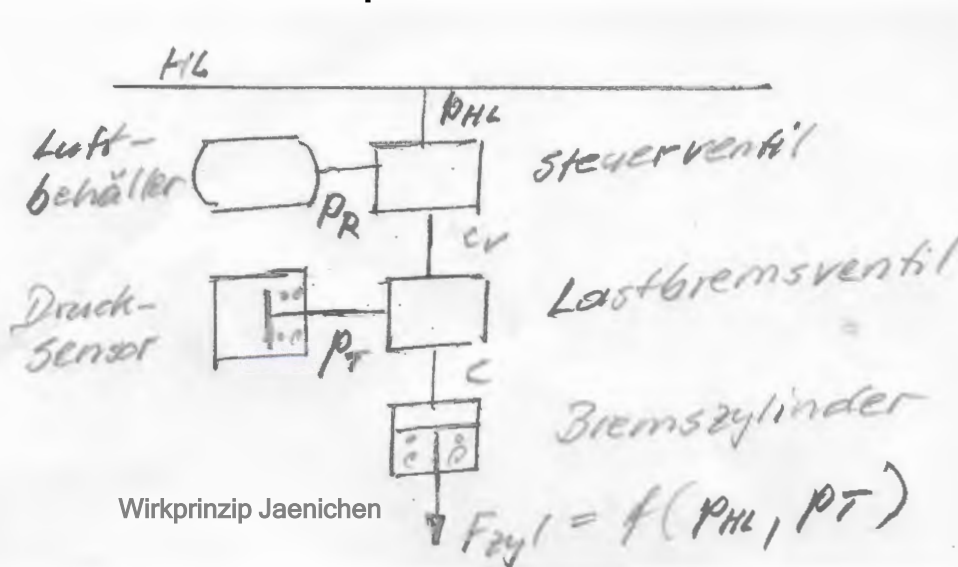 HL
pHL
Luft-
behälter
Steuerventil
pR
cv
Druck-
sensor
Lastbremsventil
pT
C
Bremszylinder
Wirkprinzip Jaenichen
Fzyl = f(pHL, pT)